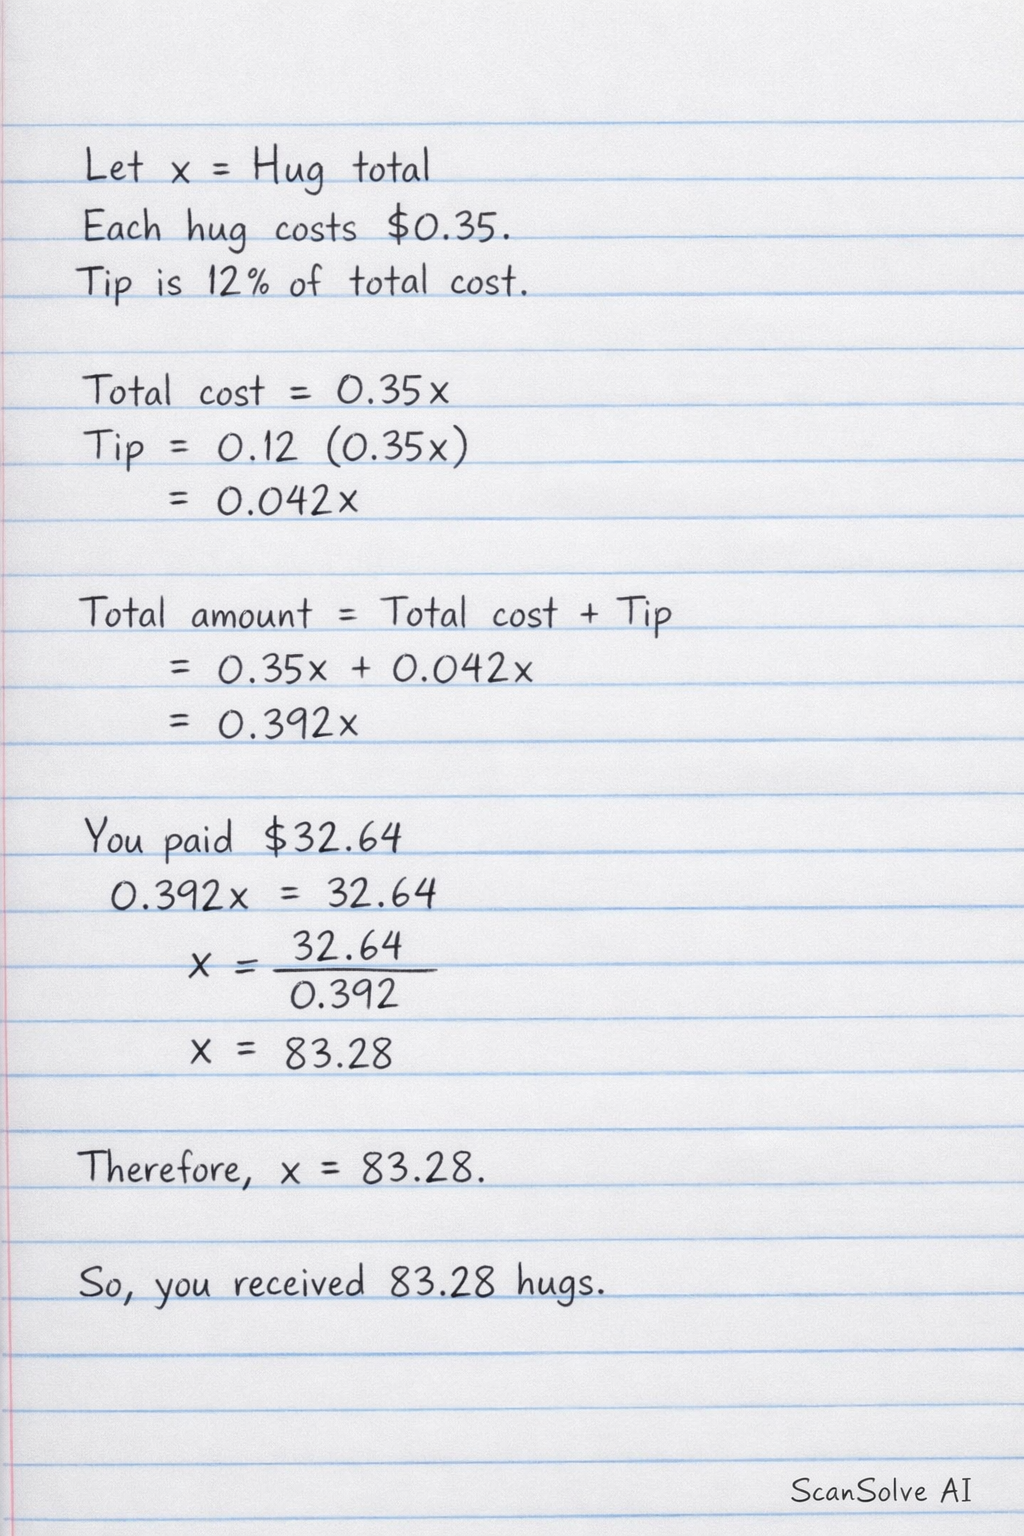 Let x = Hug total
Each hug costs $0.35.
Tip is 12% of total cost.
Total cost = 0.35x
Tip = 0.12 (0.35x)
= 0.042x
Total amount = Total cost + Tip
= 0.35x + 0.042x
= 0.392x
You paid $32.64
0.392x = 32.64
x = 32.64 / 0.392
x = 83.28
Therefore, x = 83.28.
So, you received 83.28 hugs.
ScanSolve AI